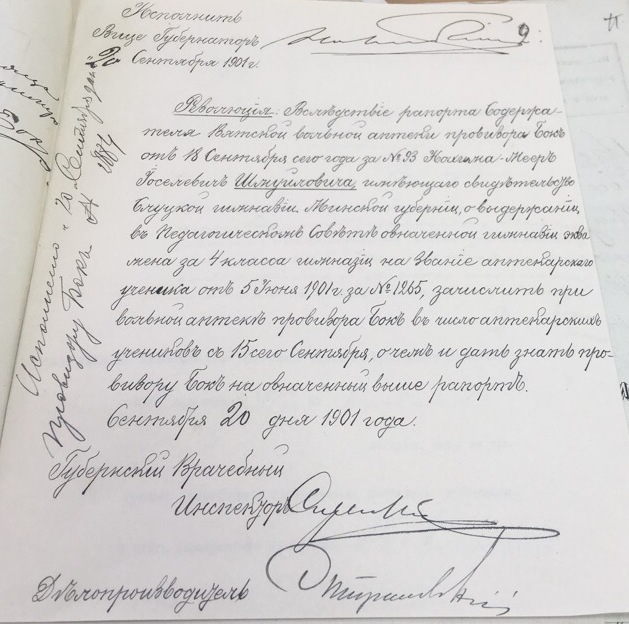 Исполнить
Вице Губернаторъ
20 Сентября 1901 г.
9
Резолюція: Вслѣдствіе рапорта Содержа-
теля Вятской вольной аптеки провизора Бокъ
отъ 18 Сентября сего года за № 93 Меер
Іоселевичъ Шмуйловича, имѣющаго свидѣтельство
Слуцкой гимназіи Минской губерніи, о выдержаніи
въ Педагогическомъ Совѣтѣ означенной гимназіи экза
мена за 4 класса гимназіи на званіе аптекарскаго
ученика отъ 5 Іюня 1901 г. за № 1265, зачислить при
вольной аптекѣ провизора Бокъ въ число аптекарскихъ
учениковъ съ 15 сего Сентября, о чемъ и дать знать про-
визору Бокъ на означенный выше рапортъ.
Сентября 20 дня 1901 года.
Губернскій Врачебный
Инспекторъ
Дѣлопроизводитель
Исполнено "20" Сентября дня
Провизору Бокъ